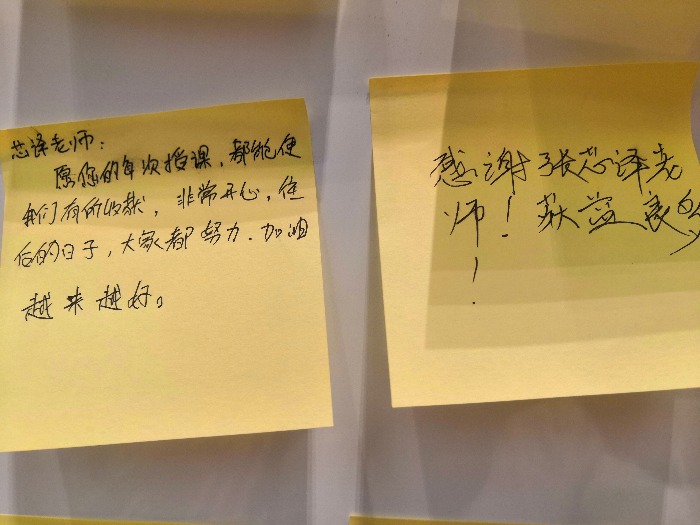 芯译老师：
愿您的每次授课，都能使
我们有所收获，非常开心，往
后的日子，大家都努力.加油
越来越好。
感谢张芯译老
师！获益良多
！